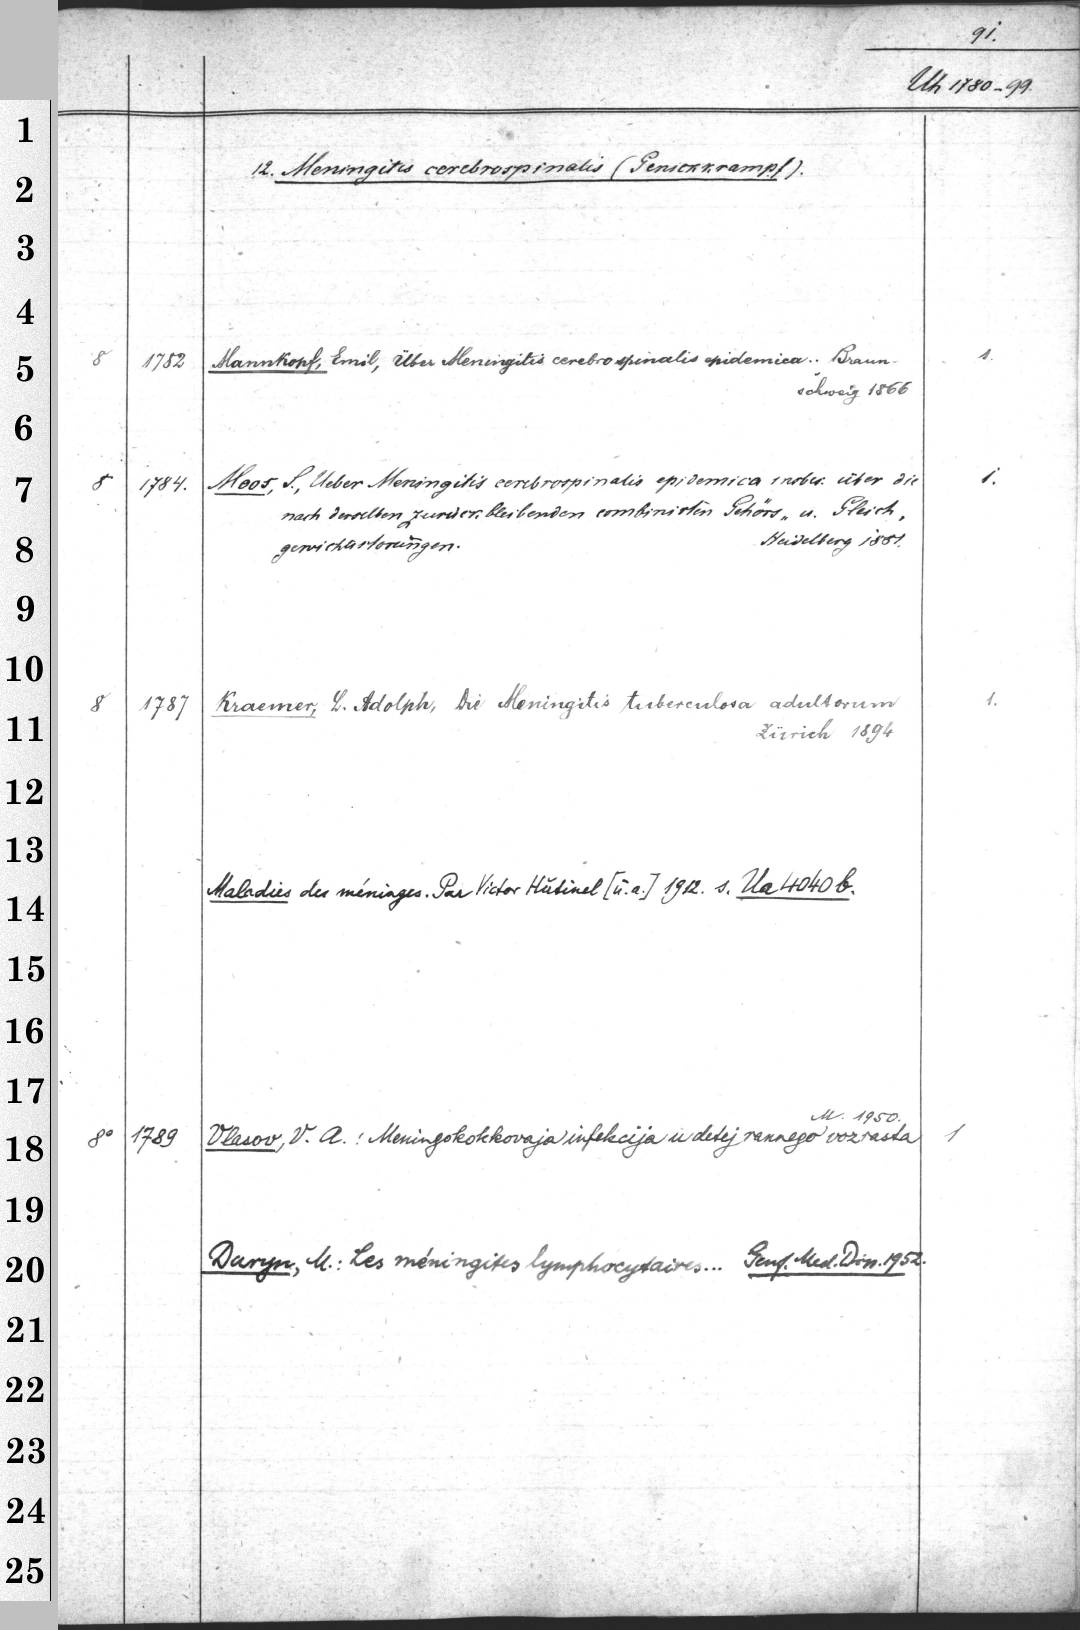 91.
Uh 1780-99.
1
2
3
4
5
6
7
8
9
10
11
12
13
14
15
16
17
18
19
20
21
22
23
24
25
12. Meningitis cerebrospinalis (Genickkrampf).
8 1782 Mannkopf, Emil, Über Meningitis cerebrospinalis epidemica.. Braun- 1.
schweig 1866
8 1784. Moos, S., Ueber Meningitis cerebrospinalis epidemica insbes. über die 1.
nach derselben zurückbleibenden combinirten Gehörs- u. Gleich-
gewichtsstörungen. Heidelberg 1881.
8 1787 Kraemer, L. Adolph, Die Meningitis tuberculosa adultorum 1.
Zürich 1894
Maladies des méninges. Par Victor Hutinel [u.a.] 1912. s. Ua 4040 b.
M. 1950.
8° 1789 Vlasov, V. A.: Meningokokkovaja infekcija u detej rannego vozrasta 1
Duryn, M.: Les méningites lymphocytaires... Genf. Med. Diss. 1952.